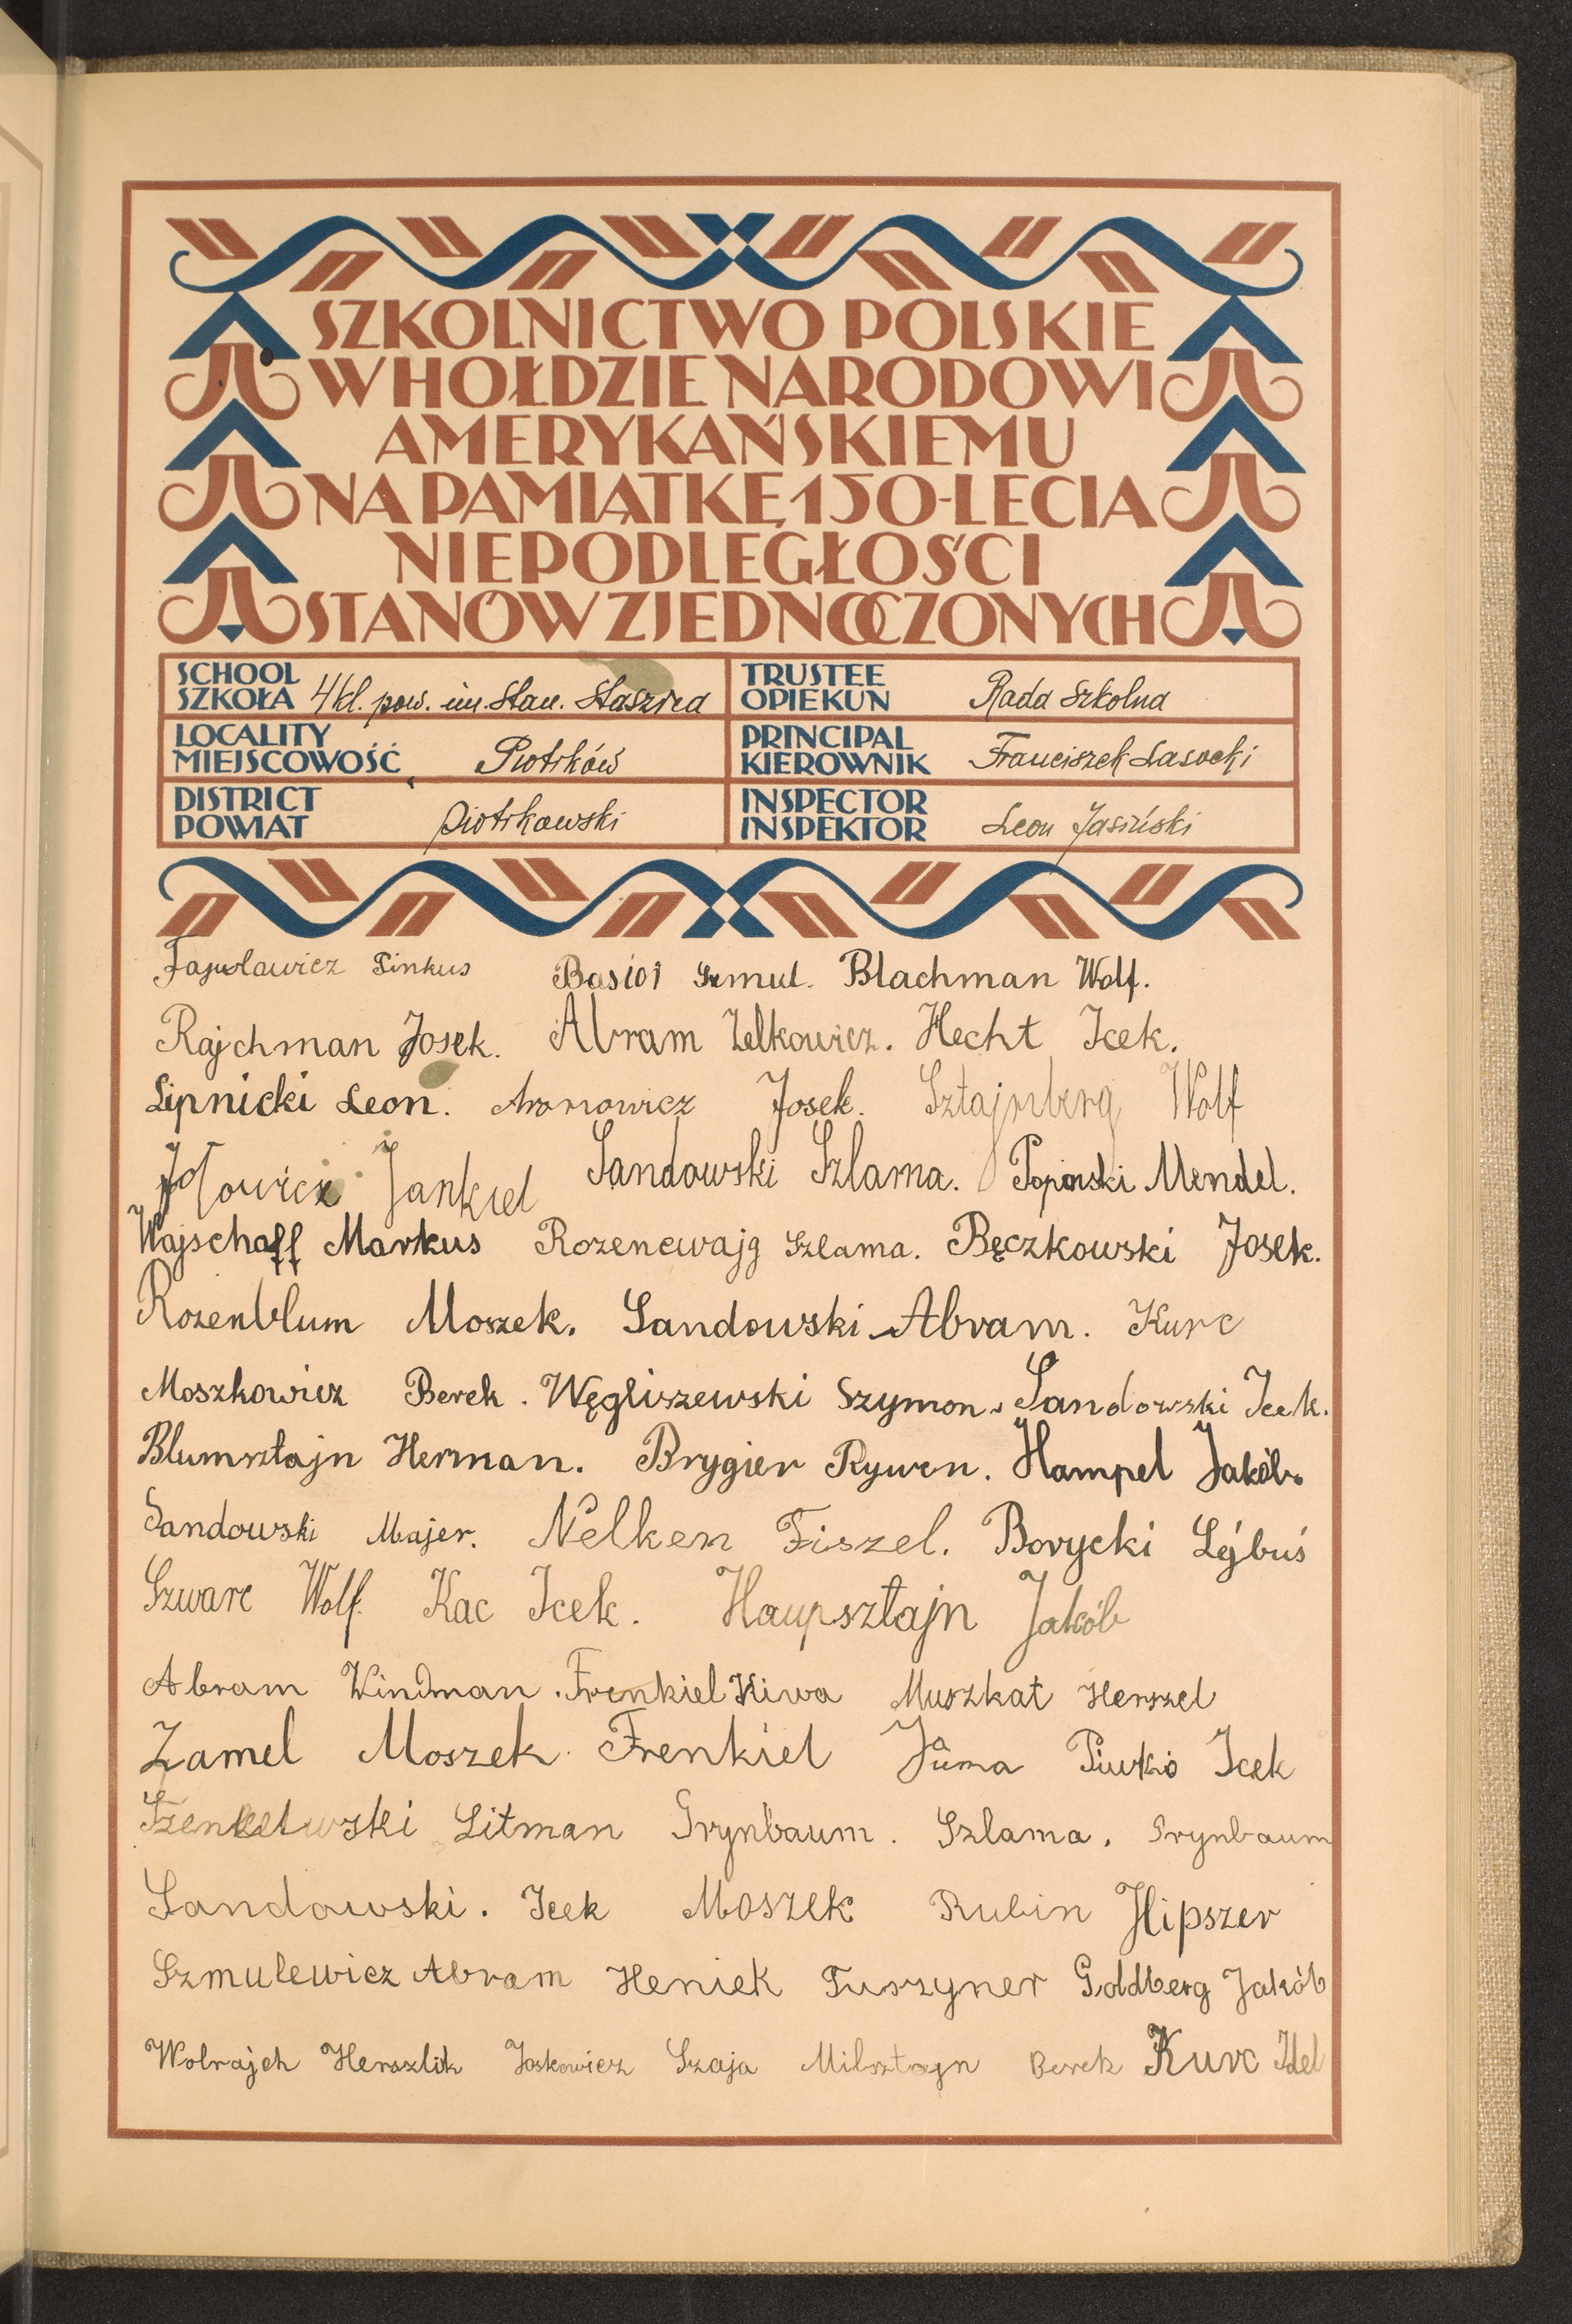 SZKOLNICTWO POLSKIE
W HOŁDZIE NARODOWI
AMERYKAŃSKIEMU
NA PAMIĄTKĘ 150-LECIA
NIEPODLEGŁOŚCI
STANÓW ZJEDNOCZONYCH
SCHOOL
SZKOŁA 4 kl. pow. im. Stan. Staszica
TRUSTEE
OPIEKUN Rada Szkolna
LOCALITY
MIEJSCOWOŚĆ Piotrków
PRINCIPAL
KIEROWNIK Franciszek Lasocki
DISTRICT
POWIAT piotrkowski
INSPECTOR
INSPEKTOR Leon Jasiński
Pinkus Szmul. Blachman Wolf.
Rajchman Josek. Abram Zelkowicz. Hecht Icek.
Lipnicki Leon. Aronowicz Josek. Sztajnberg Wolf
Jankiel Sandowski Szlama. Mendel.
Wajschaff Markus Rozencwajg Szlama. Bęczkowski Josek.
Rozenblum Moszek. Sandowski Abram. Kurc
Moszkowicz Berek. Węgliszewski Szymon. Sandowski Icek.
Blumsztajn Herman. Brygier Rywen. Hampel Jakób.
Sandowski Majer. Nelken Fiszel. Borycki Lejbuś
Szwarc Wolf. Kac Icek. Haupsztajn Jakób
Abram Windman. Frenkiel Kiwa Muszkat Herszel
Zamel Moszek. Frenkiel Juma Piwko Icek
Litman Grynbaum. Szlama. Grynbaum
Sandowski. Icek Moszek Rubin Hipszer
Szmulewicz Abram Heniek Tuszyner Goldberg Jakób
Wolrajch Herszlik Joskowicz Szaja Milsztajn Berek Kurc Idel